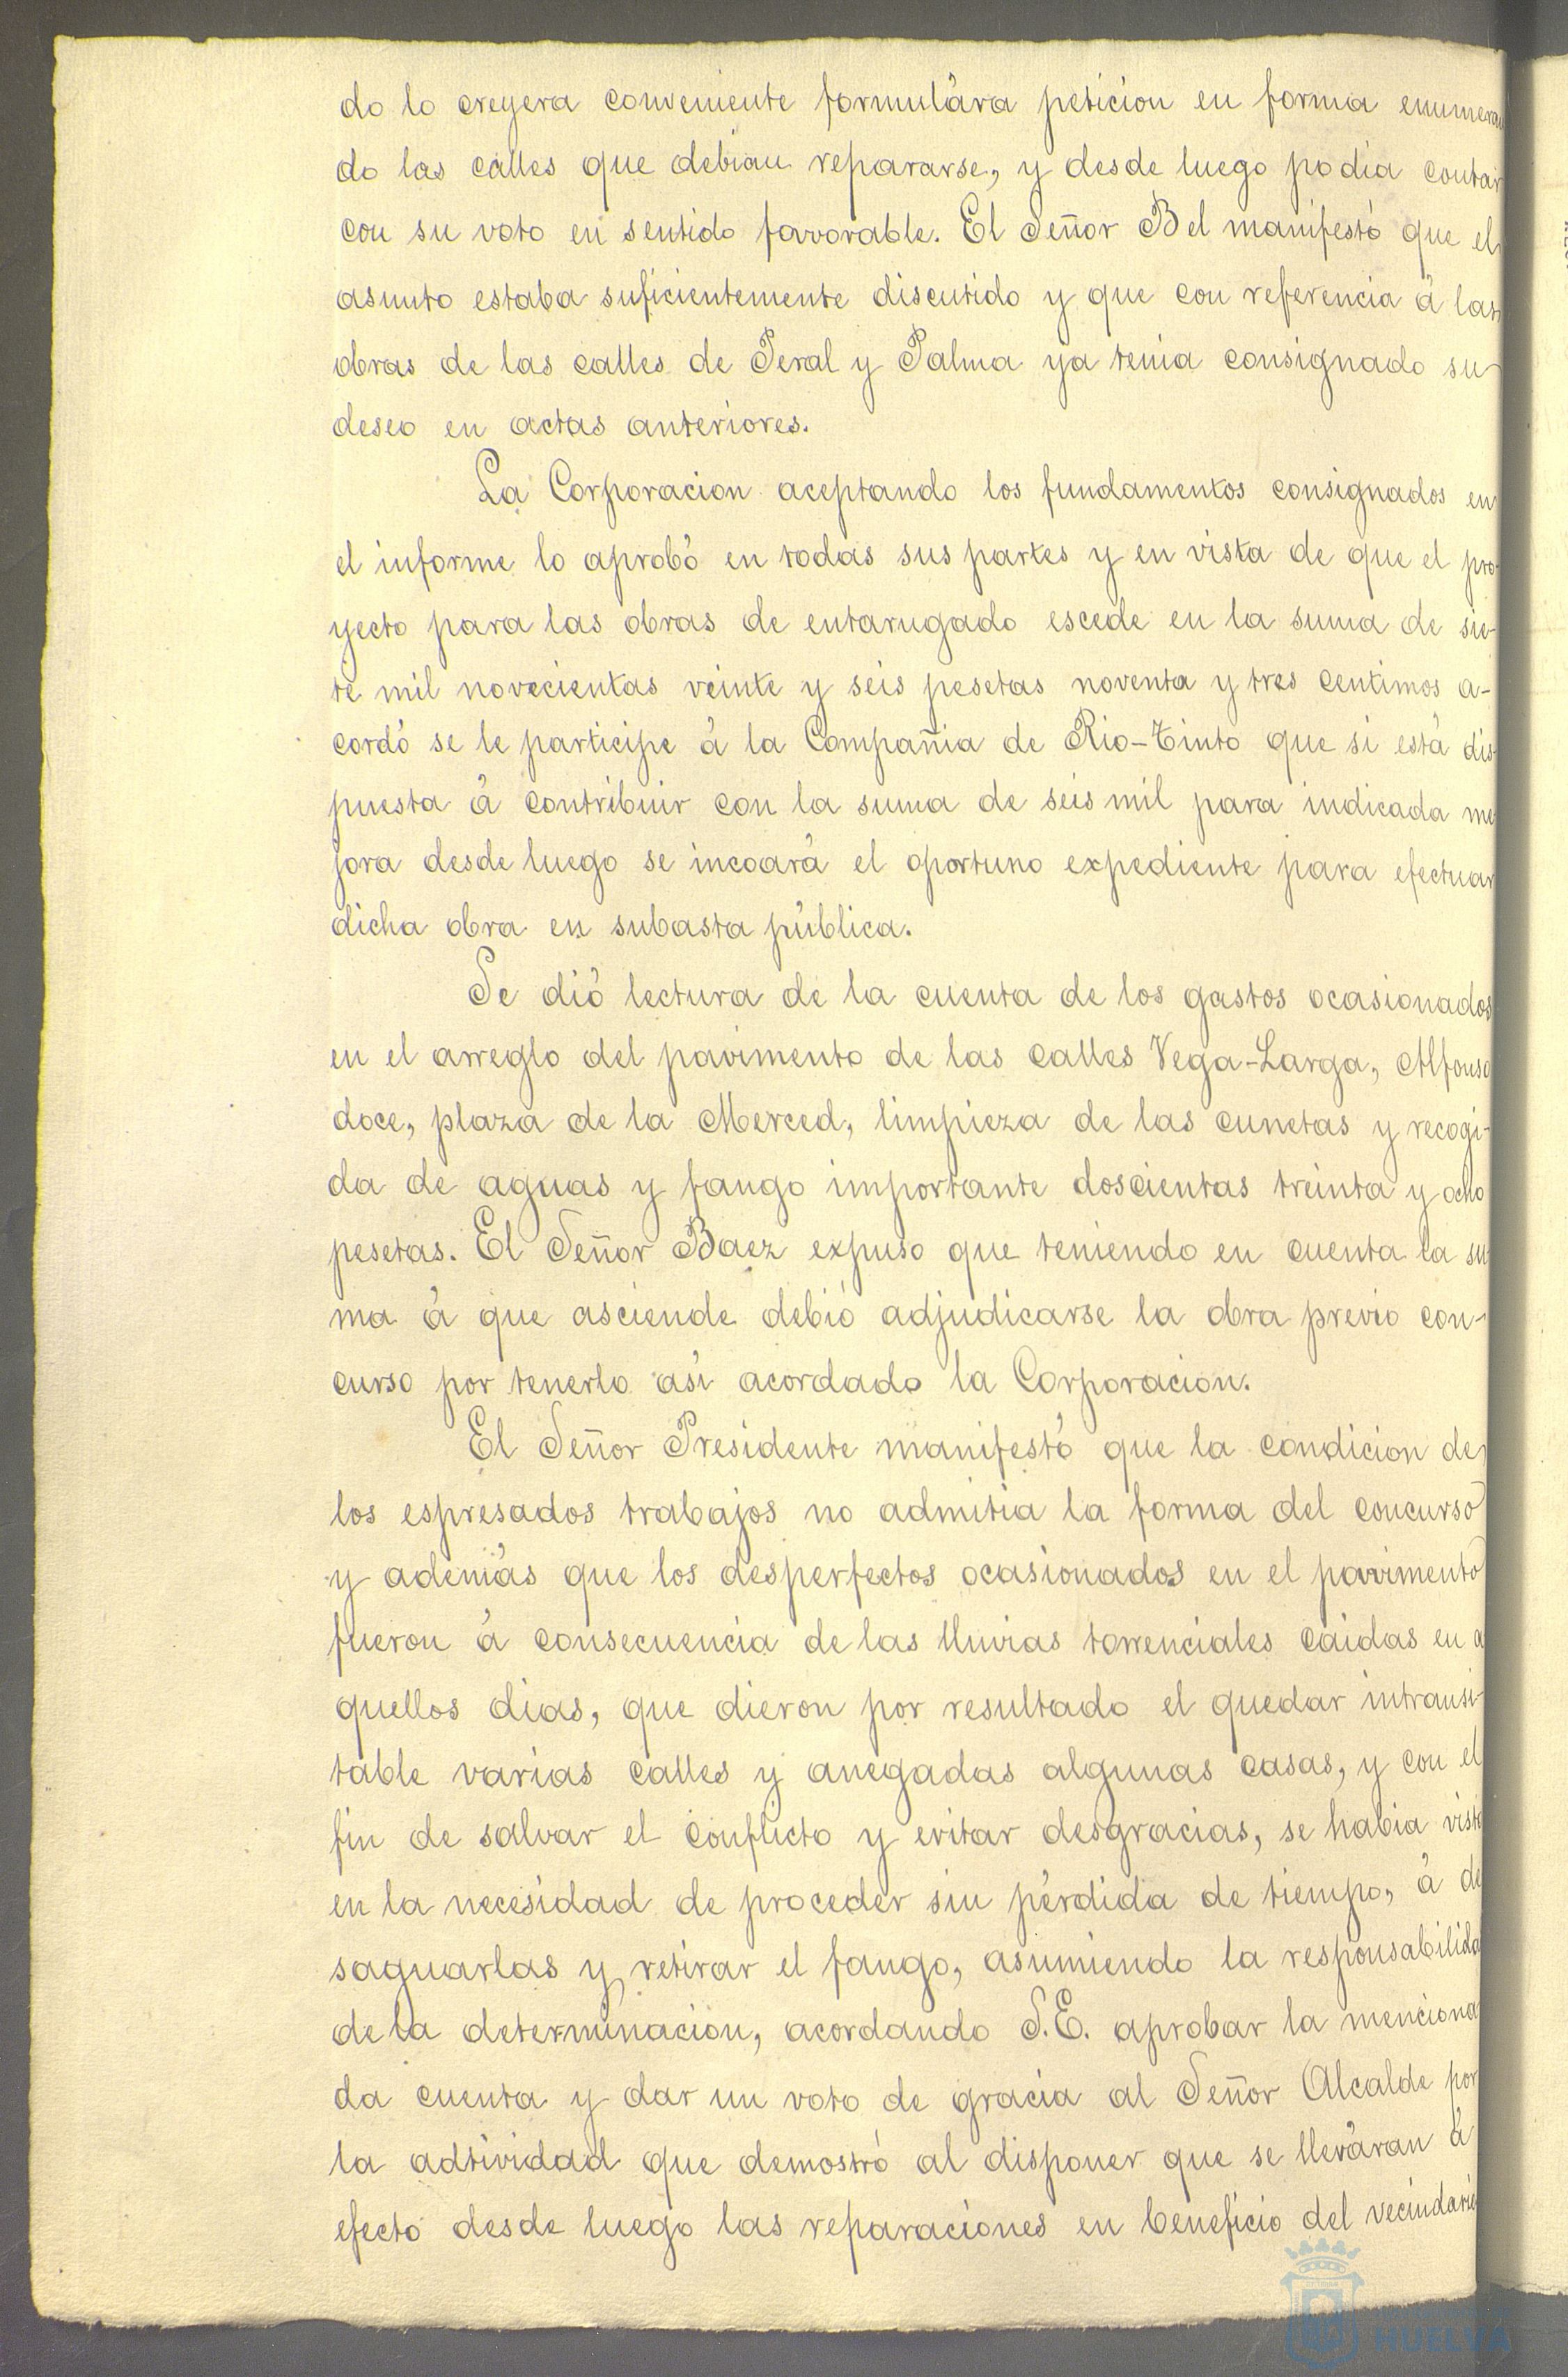 do lo creyera conveniente formulára peticion en forma enumeran
do las calles que debian repararse, y desde luego podia contar
con su voto en sentido favorable. El Señor Bel manifestó que el
asunto estaba suficientemente discutido y que con referencia á las
obras de las calles de Peral y Palma ya tenia consignado su
deseo en actas anteriores.
La Corporacion aceptando los fundamentos consignados en
el informe lo aprobó en todas sus partes y en vista de que el pro-
yecto para las obras de entarugado escede en la suma de sie-
te mil novecientas veinte y seis pesetas noventa y tres centimos a-
cordó se le participe á la Compañia de Rio-Tinto que si está dis
puesta á contribuir con la suma de seis mil para indicada me
jora desde luego se incoará el oportuno expediente para efectuar
dicha obra en subasta pública.
Se dió lectura de la cuenta de los gastos ocasionados
en el arreglo del pavimento de las calles Vega-Larga, Alfonso
doce, plaza de la Merced, limpieza de las cunetas y recogi-
da de aguas y fango importante doscientas treinta y ocho
pesetas. El Señor Baez expuso que teniendo en cuenta la su
ma á que asciende debió adjudicarse la obra previo con-
curso por tenerlo así acordado la Corporacion.
El Señor Presidente manifestó que la condicion de
los espresados trabajos no admitia la forma del concurso
y además que los desperfectos ocasionados en el pavimento
fueron á consecuencia de las lluvias torrenciales caidas en a
quellos dias, que dieron por resultado el quedar intransi-
table varias calles y anegadas algunas casas, y con el
fin de salvar el conflicto y evitar desgracias, se habia visto
en la necesidad de proceder sin pérdida de tiempo, á de
saguarlas y retirar el fango, asumiendo la responsabilida
de la determinacion, acordando S.E. aprobar la menciona
da cuenta y dar un voto de gracia al Señor Alcalde por
la adtividad que demostró al disponer que se lleváran á
efecto desde luego las reparaciones en beneficio del vecindario
HUELVA